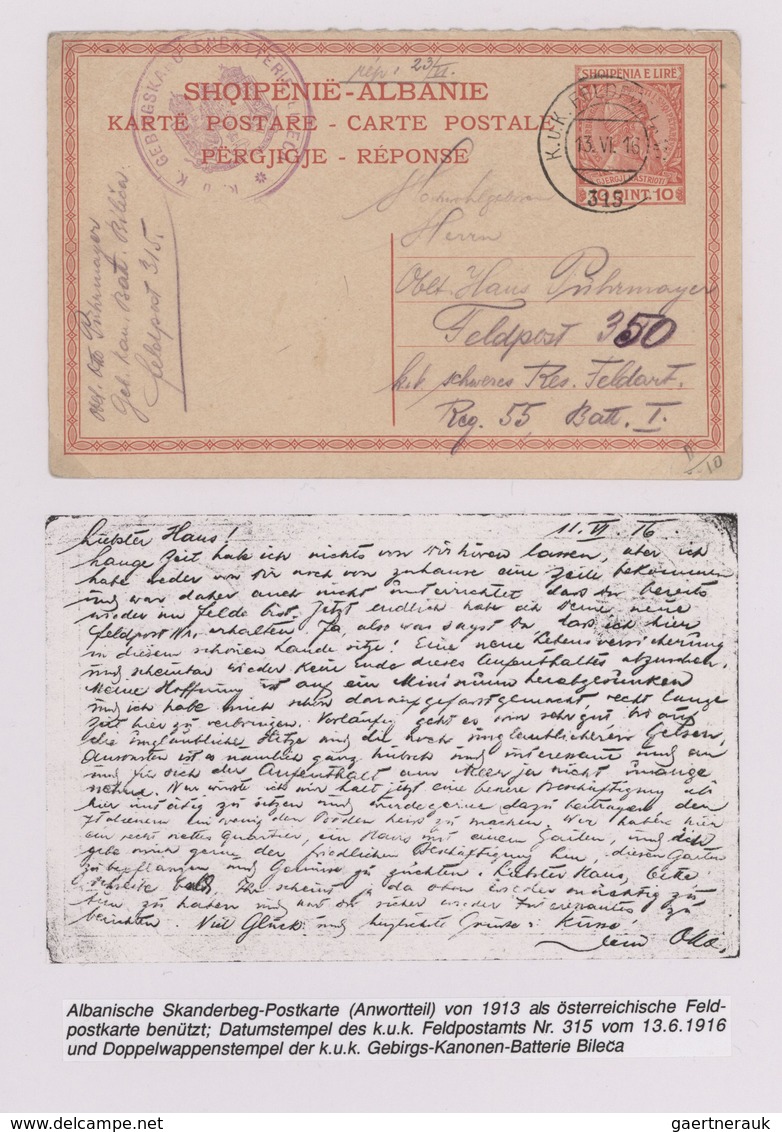 K. U. K. GEBIRGSKANONENBATTERIE BILEĆA
rép: 23/VI.
SHQIPENIË-ALBANIE
KARTË POSTARE - CARTE POSTALE
PËRGJIGJE - RÉPONSE
SHQIPENIA E LIRË
GJERGJ KASTRIOTI
10 QINT. 10
K.u.K. FELDPOSTAMT
13. VI. 16
315
Oblt. Otto Pührmayer
Geb. kan. Bat. Bileća
Feldpost 315.
Hochwohlgeboren
Herrn
Oblt. Hans Pührmayer
Feldpost 350
k.k. schweres Res. Feldart.
Reg. 55, Batt. I.
Liebster Hans! 11. VI. 16.
Lange Zeit habe ich nichts von mir hören lassen, aber ich
habe weder von Dir noch von zuhause eine Zeile bekommen
und war daher auch nicht unterrichtet dass Du bereits
wieder im Felde bist. Jetzt endlich habe ich Deine neue
Feldpost Nr. erhalten. Ja, also was sagst Du, dass ich hier
in diesem schönen Lande sitze! Eine neue Lebensversicherung
und scheinbar wieder kein Ende dieses Aufenthaltes abzusehen.
Meine Hoffnung ist auf ein Minimum herabgesunken
und ich habe mich schon darauf gefasst gemacht, recht lange
Zeit hier zu verbringen. Vorläufig geht es mir sehr gut bis auf
die unglaubliche Hitze und die noch unglaublicheren Gelsen.
Ansonsten ist es nämlich ganz hübsch und interessant und an
und für sich der Aufenthalt am Meer ja nicht
Nur wünschte ich mir halt jetzt eine bessere Beschäftigung als
hier untätig zu sitzen und würde gerne dazu beitragen den
Italienern ein wenig den Boden heiss zu machen. Wir haben hier
ein recht nettes Quartier, ein Haus mit einem Garten, und ich
gebe mich gerne der friedlichen Beschäftigung hin, diesen Garten
zu bepflanzen und Gemüse zu züchten. Liebster Hans, bitte
schreibe bald, Ihr scheint ja da oben wieder mächtig zu
tun zu haben und hast Du sicher wieder Interessantes zu
berichten. Viel Glück und herzlichste Grüsse u. Küsse!
Dein Otto.
Albanische Skanderbeg-Postkarte (Anwortteil) von 1913 als österreichische Feld-
postkarte benützt; Datumstempel des k.u.k. Feldpostamts Nr. 315 vom 13.6.1916
und Doppelwappenstempel der k.u.k. Gebirgs-Kanonen-Batterie Bileća
gaertnerauk